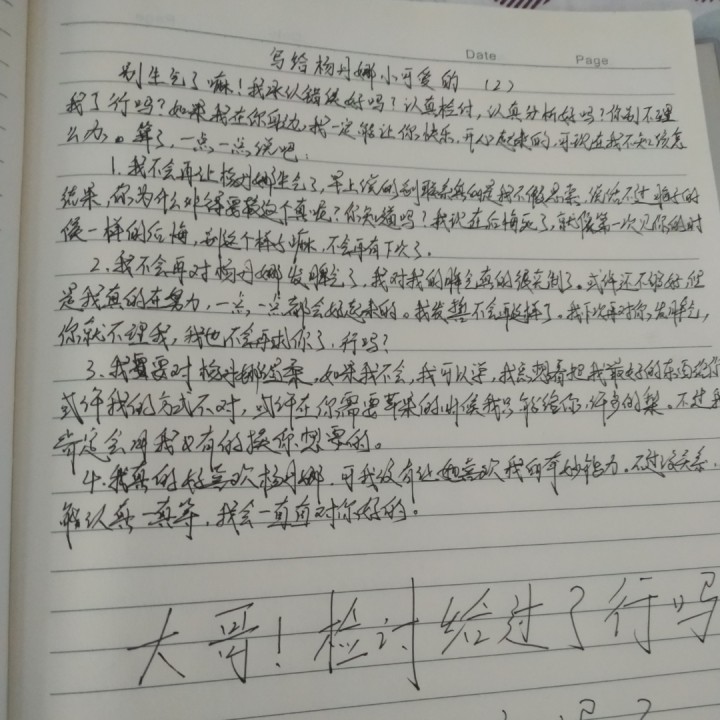 Date Page
写给杨丹娜小可爱的 (2)
别生气了嘛！我承认错误好吗？认真检讨，认真分析好吗？你别不理
我了行吗？如果我在你身边，我一定能让你快乐，开心起来的，可现在我不知该怎
么办。算了，一点一点说吧：
1.我不会再让杨丹娜生气了，早上说的别联系真的是我不假思索，没经过
结果，你为什么非得要较这个真呢？你知道吗？我现在后悔死了，就像第一次见你的时
候一样的后悔，别这个样子嘛，不会再有下次了。
2.我不会再对杨丹娜发脾气了，我对我的脾气真的很克制了。或许还不够好，但
是我真的在努力，一点一点都会好起来的。我发誓不会再这样了。我下次再对你发脾气，
你就不理我，我也不会再求你了，行吗？
3.我要对杨丹娜温柔，如果我不会，我可以学，我总想着把我最好的东西给你
或许我的方式不对，或许在你需要苹果的时候我只能给你好多的梨。不过我
肯定会用我又有的换你想要的。
4.我真的好喜欢杨丹娜，可我没有让她喜欢我的有妙能力。不过没关系，
能认真一直等，我会一直对你好的。
大哥！检讨给过了行吗